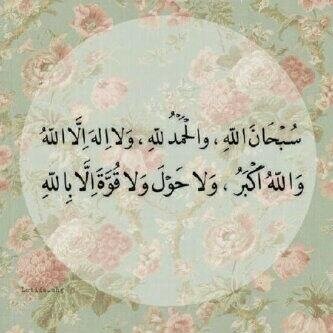 سُبْحَانَ اللّٰهِ ، وَالْحَمْدُ لِلّٰهِ ، وَلَا اِلٰهَ اِلَّا اللّٰهُ
وَاللّٰهُ اَكْبَرُ ، وَلَا حَوْلَ وَلَا قُوَّةَ اِلَّا بِاللّٰهِ